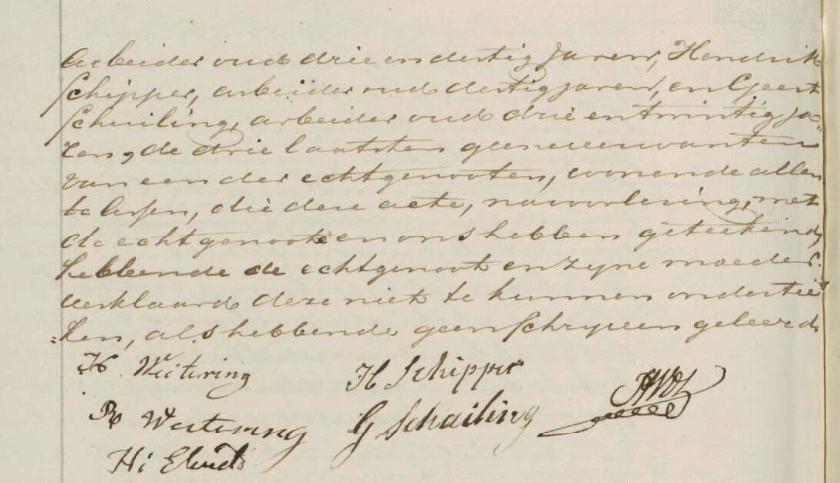 arbeider oud drie en dertig jaren, Hendrik
Schipper, arbeider oud dertig jaren, en Geert
Schuiling, arbeider oud drie en twintig ja„
ren, de drie laatsten geene verwanten
van een der echtgenooten, wonende allen
te, die deze acte, na voorlezing, met
de echtgenoote en ons hebben geteekend,
hebbende de echtgenoot en zyne moeder
verklaard deze niet te kunnen ondertee
„ken, als hebbende geen schryven geleerd.
H Schipper
G Schuiling